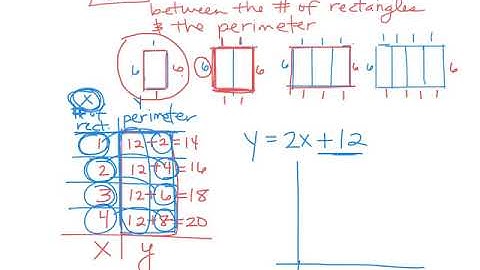 between the # of rectangles
& the perimeter
1 1
6 6
1 1
1 1
6 6
1 1
1 1 1
6 6
1 1 1
1 1 1 1
6 6
1 1 1 1
x
# of rect. perimeter
1 12+2=14
2 12+4=16
3 12+6=18
4 12+8=20
x y
y = 2x + 12